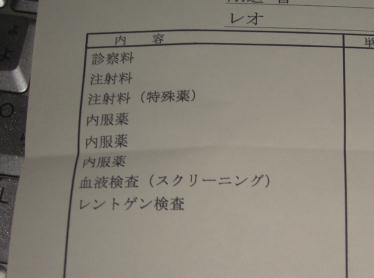 レオ
内 容
診察料
注射料
注射料（特殊薬）
内服薬
内服薬
内服薬
血液検査（スクリーニング）
レントゲン検査